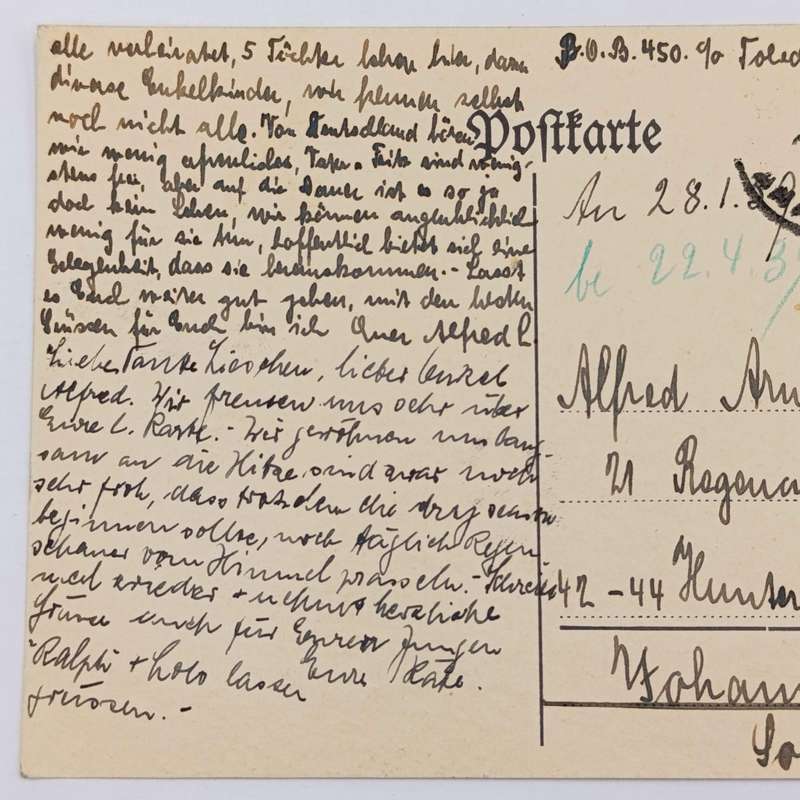 alle verheiratet, 5 Töchter leben hier, dann
diverse Enkelkinder, wir kennen selbst
noch nicht alle. Von Deutschland hören
wir wenig erfreuliches, Vater u. Fritz sind wenig-
stens frei, aber auf die Dauer ist es so ja
doch kein Leben, wir können augenblicklich
wenig für sie tun, hoffentlich bietet sich eine
Gelegenheit, dass sie herauskommen. - Lasst
es Euch weiter gut gehen, mit den besten
Grüssen für Euch bin ich Euer Alfred L.
Liebe Tante Lieschen, lieber Onkel
Alfred. Wir freuen uns sehr über
Eure l. Karte. - Wir gewöhnen uns lang-
sam an die Hitze, sind zwar noch
sehr froh, dass trotzdem die dry season
beginnen sollte, noch täglich Regen
schauer vom Himmel prasseln. - Schreibt
mal wieder + nehmt herzliche
Grüsse auch für Euren Jungen
Eure Käte.
Ralph + Lolo lassen
grüssen. -
P.O.B. 450. c/o Toled
Postkarte
An 28.1.
be 22.4.39
Alfred
21
42-44 Hunter
Johann
So